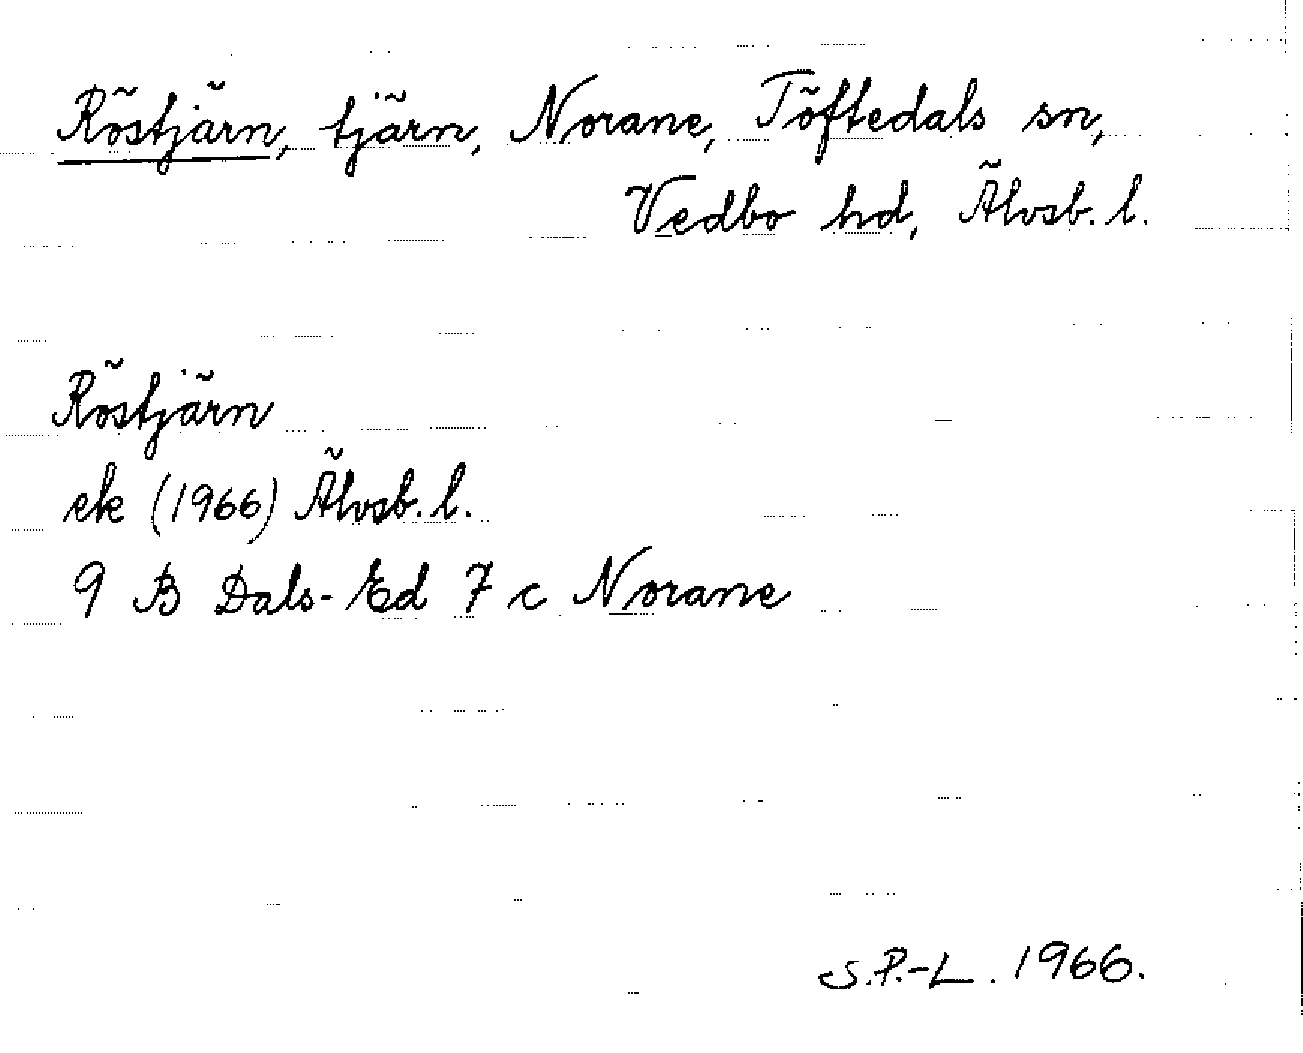 Röstjärn, tjärn, Norane, Töftedals sn,
Vedbo hd, Älvsb. l.
Röstjärn
ek (1966) Älvsb. l.
9 B Dals-Ed 7 c Norane
S.P.-L. 1966.